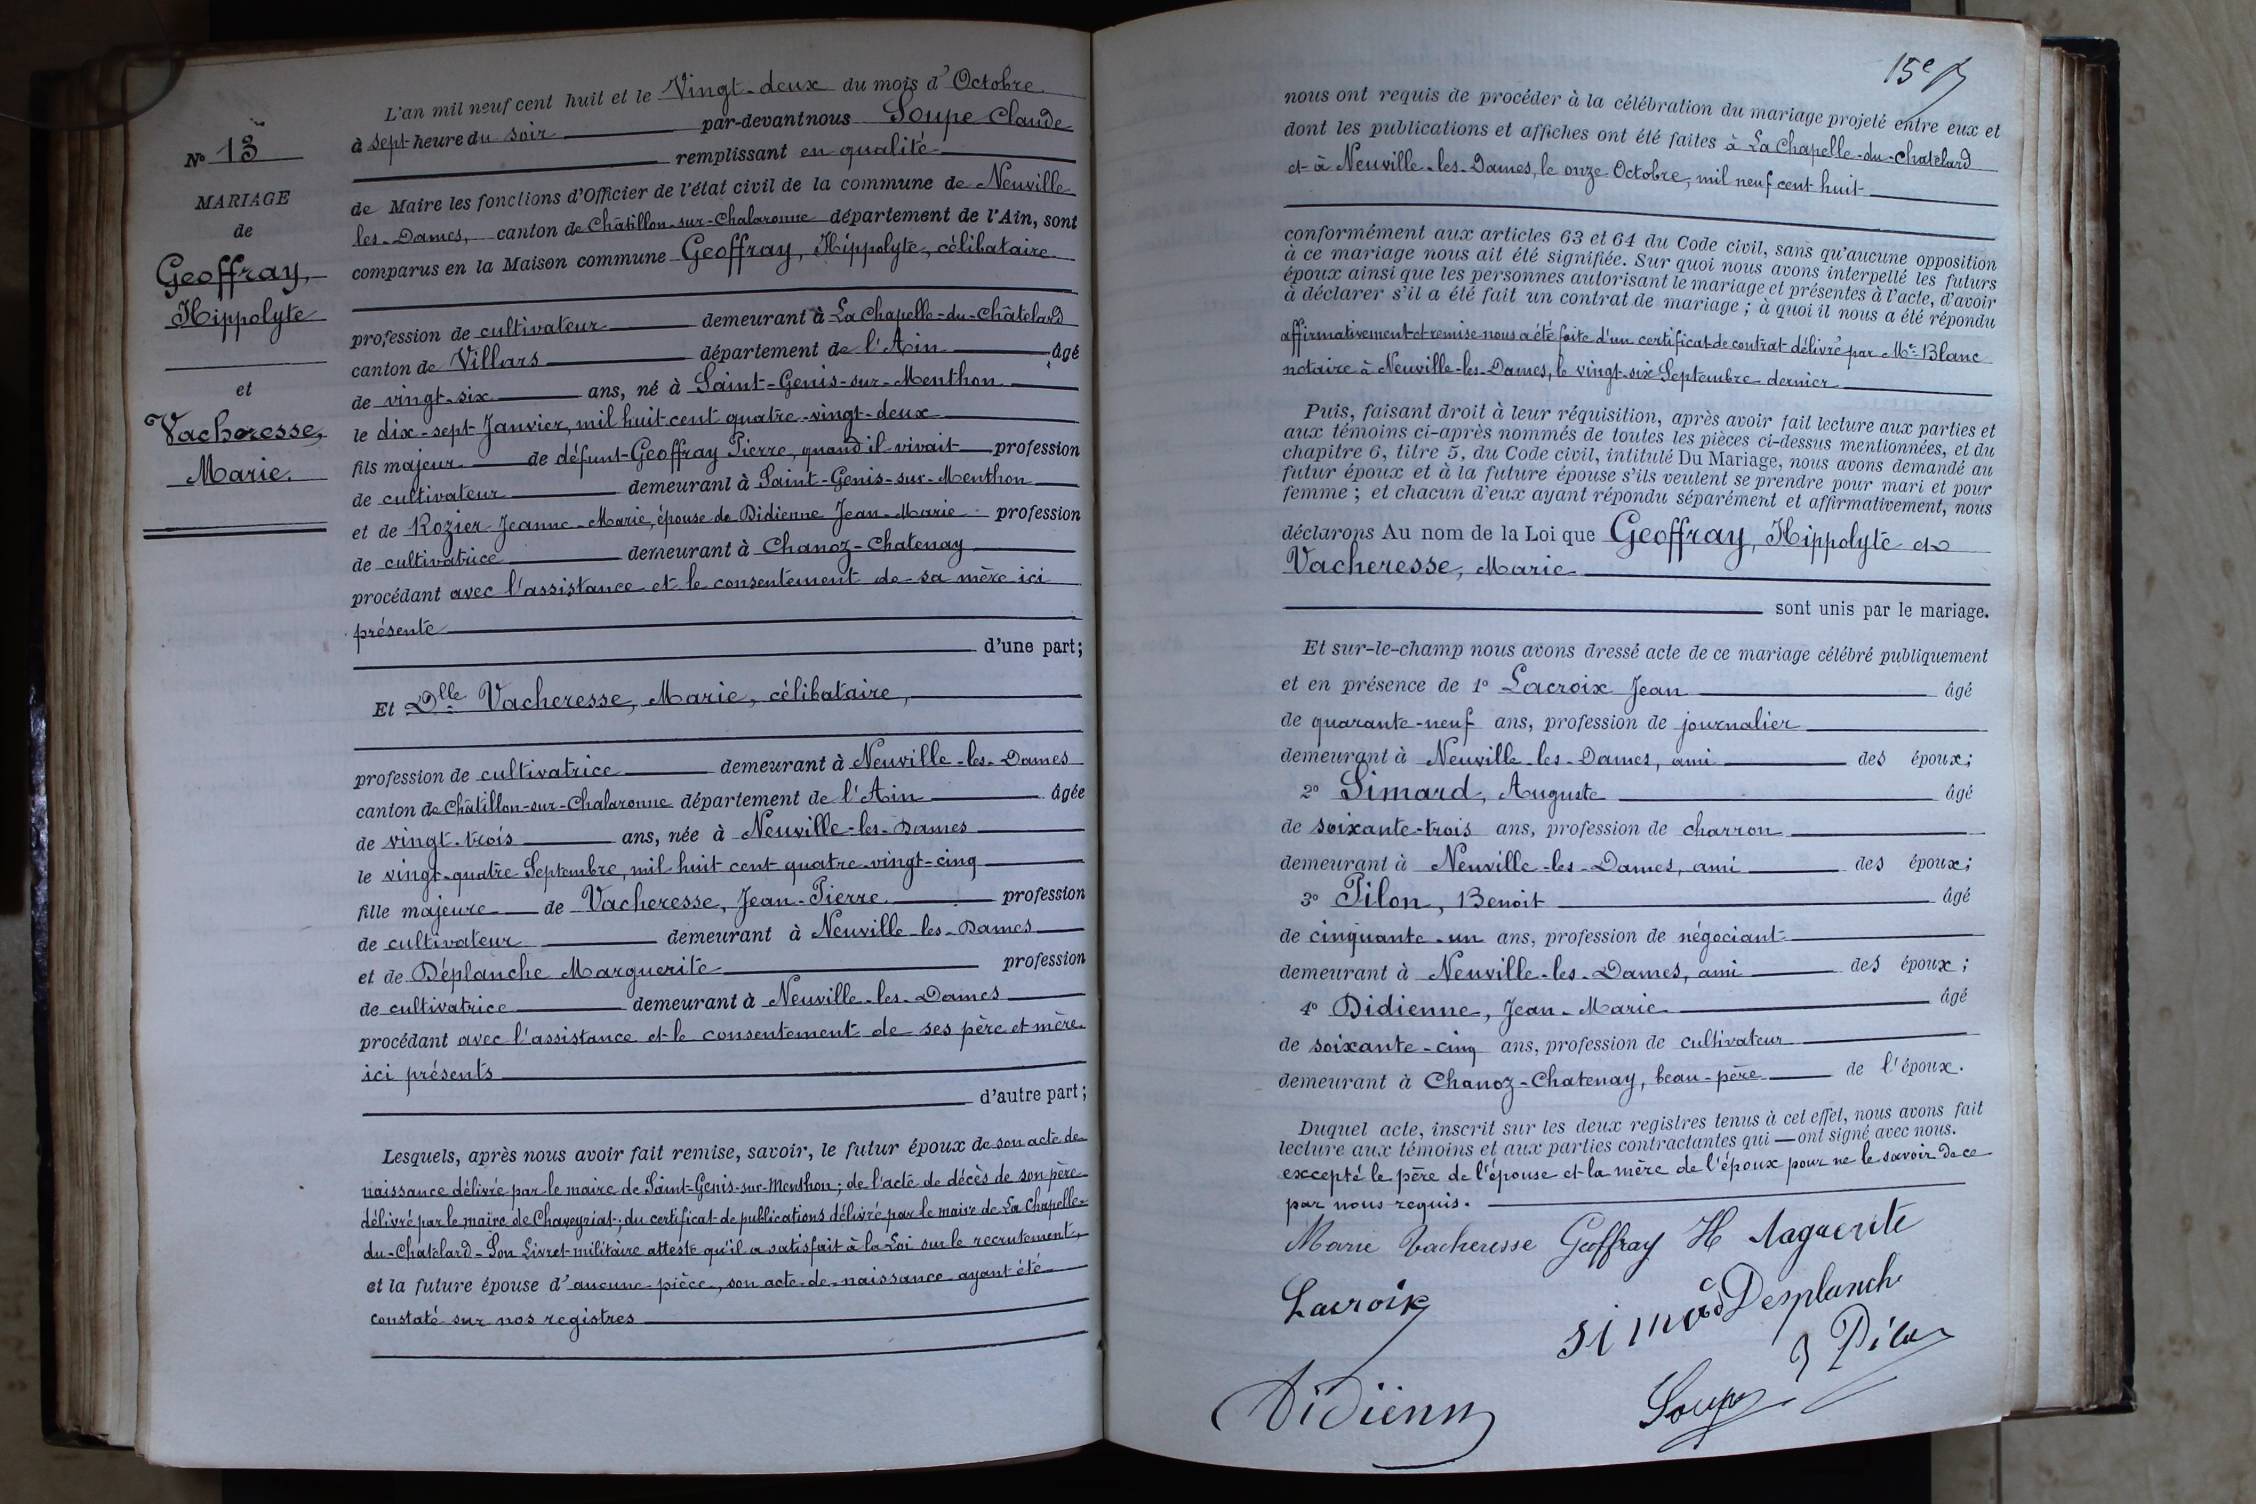 N° 13
MARIAGE
de
Geoffray,
Hippolyte
et
Vacheresse,
Marie.
L'an mil neuf cent huit et le Vingt-deux du mois d'Octobre
à sept heure du soir par-devant nous Soupe Claude
remplissant en qualité
de Maire les fonctions d'Officier de l'état civil de la commune de Neuville
les-Dames, canton de Châtillon-sur-Chalaronne département de l'Ain, sont
comparus en la Maison commune Geoffray, Hippolyte, célibataire
profession de cultivateur demeurant à La Chapelle-du-Châtelard
canton de Villars département de l'Ain âgé
de vingt-six ans, né à Saint-Genis-sur-Menthon
le dix-sept Janvier, mil huit cent quatre-vingt-deux
fils majeur de défunt Geoffray Pierre, quand il vivait profession
de cultivateur demeurant à Saint-Genis-sur-Menthon
et de Rozier Jeanne-Marie, épouse de Didienne Jean-Marie profession
de cultivatrice demeurant à Chanoz-Chatenay
procédant avec l'assistance et le consentement de sa mère ici
présente
d'une part;
Et Dlle Vacheresse, Marie, célibataire,
profession de cultivatrice demeurant à Neuville-les-Dames
canton de Châtillon-sur-Chalaronne département de l'Ain âgée
de vingt-trois ans, née à Neuville-les-Dames
le vingt-quatre Septembre, mil huit cent quatre-vingt-cinq
fille majeure de Vacheresse, Jean-Pierre profession
de cultivateur demeurant à Neuville-les-Dames
et de Déplanche Marguerite profession
de cultivatrice demeurant à Neuville-les-Dames
procédant avec l'assistance et le consentement de ses père et mère
ici présents
d'autre part;
Lesquels, après nous avoir fait remise, savoir, le futur époux de son acte de
naissance délivré par le maire de Saint-Genis-sur-Menthon; de l'acte de décès de son père
délivré par le maire de Chaveyriat; du certificat de publications délivré par le maire de La Chapelle-
du-Chatelard - Son Livret militaire atteste qu'il a satisfait à la Loi sur le recrutement,
et la future épouse d'aucune pièce, son acte de naissance ayant été
constaté sur nos registres
15e
nous ont requis de procéder à la célébration du mariage projeté entre eux et
dont les publications et affiches ont été faites à La Chapelle-du-Chatelard
et à Neuville-les-Dames, le onze Octobre, mil neuf cent huit
conformément aux articles 63 et 64 du Code civil, sans qu'aucune opposition
à ce mariage nous ait été signifiée. Sur quoi nous avons interpellé les futurs
époux ainsi que les personnes autorisant le mariage et présentes à l'acte, d'avoir
à déclarer s'il a été fait un contrat de mariage; à quoi il nous a été répondu
affirmativement et remise nous a été faite d'un certificat de contrat délivré par Me Blanc
notaire à Neuville-les-Dames, le vingt-six Septembre dernier
Puis, faisant droit à leur réquisition, après avoir fait lecture aux parties et
aux témoins ci-après nommés de toutes les pièces ci-dessus mentionnées, et du
chapitre 6, titre 5, du Code civil, intitulé Du Mariage, nous avons demandé au
futur époux et à la future épouse s'ils veulent se prendre pour mari et pour
femme; et chacun d'eux ayant répondu séparément et affirmativement, nous
déclarons Au nom de la Loi que Geoffray, Hippolyte et
Vacheresse, Marie
sont unis par le mariage.
Et sur-le-champ nous avons dressé acte de ce mariage célébré publiquement
et en présence de 1° Lacroix Jean âgé
de quarante-neuf ans, profession de journalier
demeurant à Neuville-les-Dames, ami des époux;
2° Simard, Auguste âgé
de soixante-trois ans, profession de charron
demeurant à Neuville-les-Dames, ami des époux;
3° Pilon, Benoit âgé
de cinquante-un ans, profession de négociant
demeurant à Neuville-les-Dames, ami des époux;
4° Didienne, Jean-Marie âgé
de soixante-cinq ans, profession de cultivateur
demeurant à Chanoz-Chatenay, beau-père de l'époux.
Duquel acte, inscrit sur les deux registres tenus à cet effet, nous avons fait
lecture aux témoins et aux parties contractantes qui ont signé avec nous.
excepté le père de l'épouse et la mère de l'époux pour ne le savoir de ce
par nous requis.
Marie Vacheresse Geoffray H Maguerite
Lacroix simard Desplanche
B Pilon
Didienne Soupe